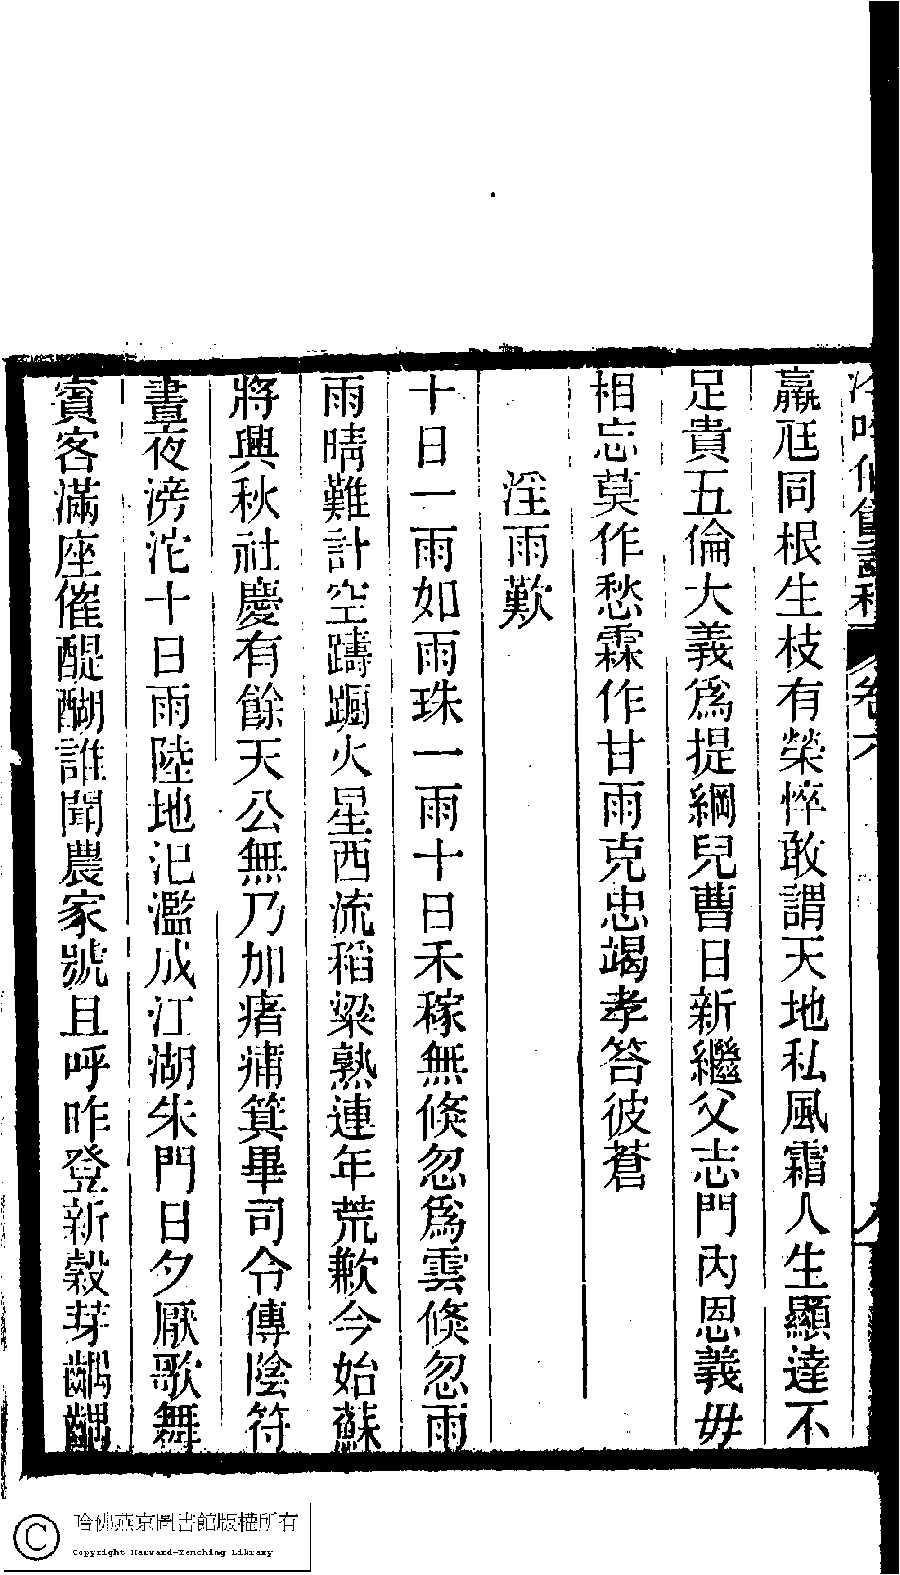 羸尫同根生枝有榮悴敢謂天地私風霜人生顯達不
足貴五倫大義爲提綱兒曹日新繼父志門內恩義毋
相忘莫作愁霖作甘雨克忠竭孝答彼蒼
淫雨歎
十日一雨如雨珠一雨十日禾稼無倏忽爲雲倏忽雨
雨晴難計空躊躕火星西流稻粱熟連年荒歉今始蘇
將興秋社慶有餘天公無乃加瘏痡箕畢司令傳陰符
晝夜滂沱十日雨陸地氾濫成江湖朱門日夕厭歌舞
賓客滿座催醍醐誰聞農家號且呼昨登新穀芽齵齵
卷六
哈佛燕京圖書館版權所有
Copyright Harvard-Yenching Library